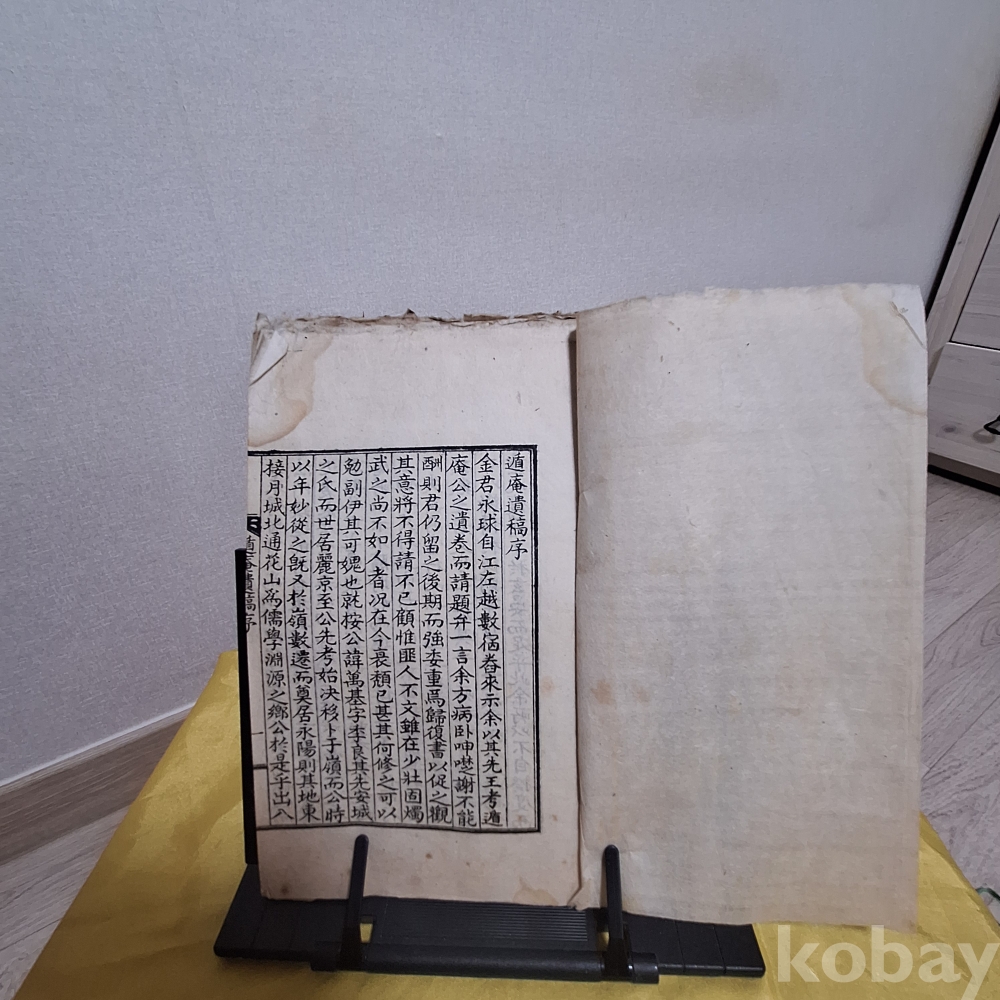 遁庵遺稿序
金君永球自江左越數宿舂來示余以其先王考遁
庵公之遺卷而請題弁一言余方病卧呻囈謝不能
酬則君仍留之後期而強委重焉歸復書以促之觀
其意將不得請不已顧惟匪人不文雖在少壯固燭
武之尚不如人者况在今衰頹已甚其何修之可以
勉副伊其可媿也就按公諱萬基字季良其先安城
之氏而世居麗京至公先考始决移卜于嶺而公時
以年妙從之旣又於嶺數遷而奠居永陽則其地東
接月城北通花山爲儒學淵源之鄉公於是乎出入
遁庵遺稿序
kobay